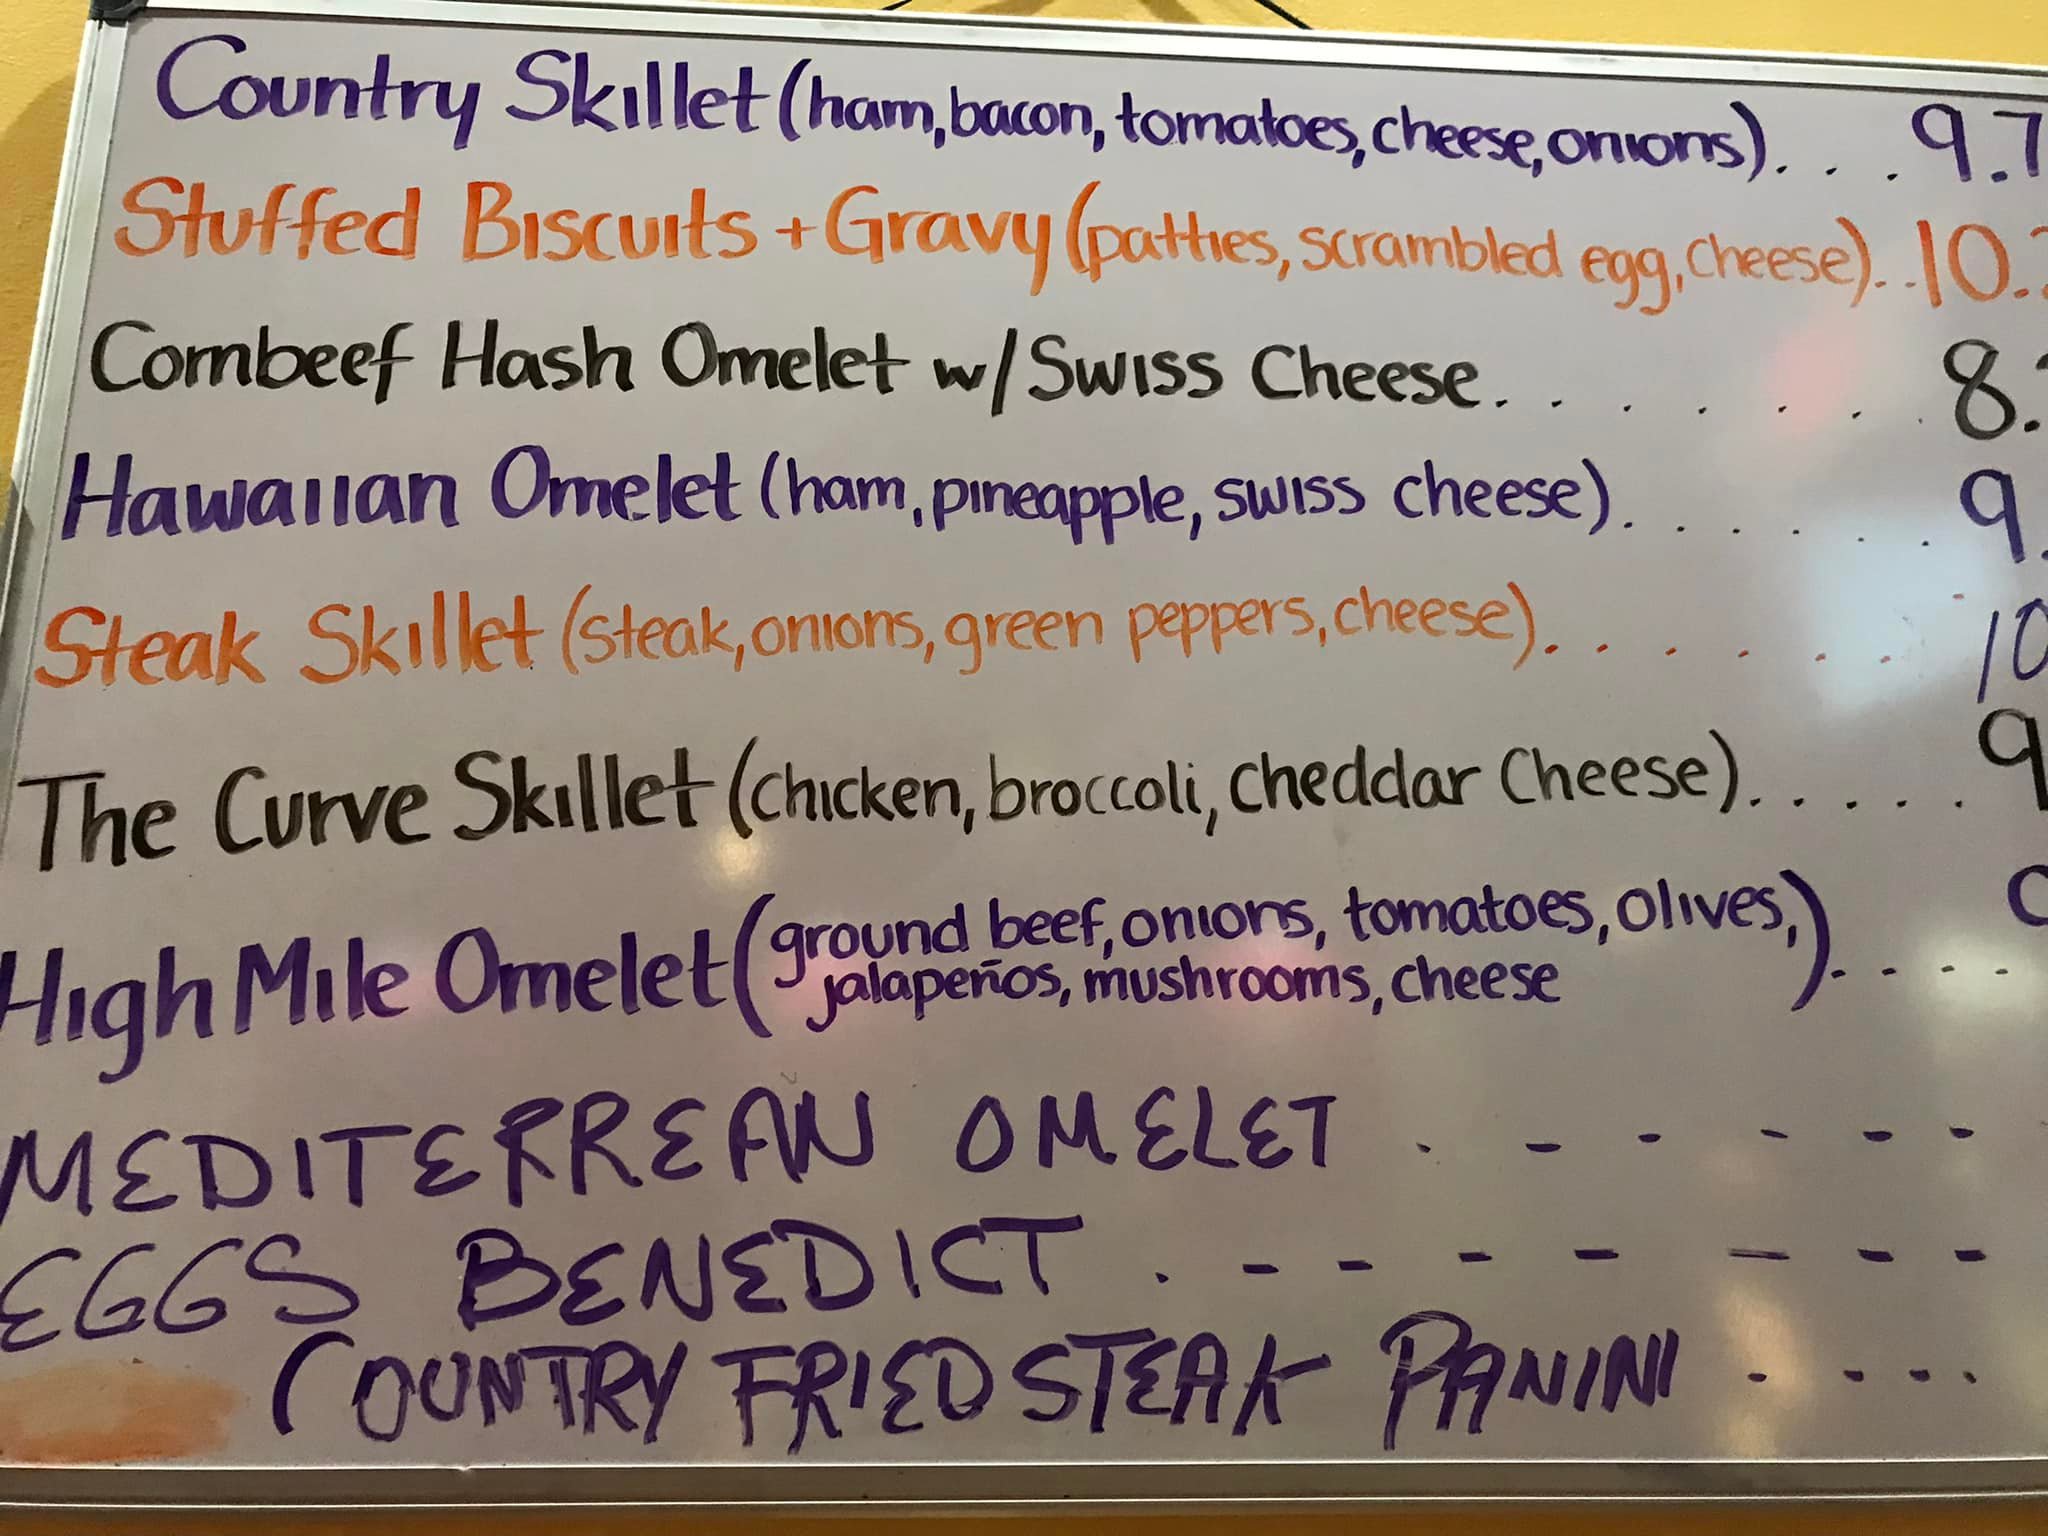 Country Skillet (ham, bacon, tomatoes, cheese, onions)... 9.7
Stuffed Biscuits + Gravy (patties, scrambled egg, cheese)..10.
Cornbeef Hash Omelet w/ Swiss Cheese....... 8.
Hawaiian Omelet (ham, pineapple, swiss cheese)...... 9.
Steak Skillet (steak, onions, green peppers, cheese)...... 10
The Curve Skillet (chicken, broccoli, cheddar Cheese)..... 9
High Mile Omelet (ground beef, onions, tomatoes, olives,)....
jalapeños, mushrooms, cheese
MEDITERREAN OMELET . - - - - -
EGGS BENEDICT . - - - - - - -
COUNTRY FRIED STEAK PANINI ....